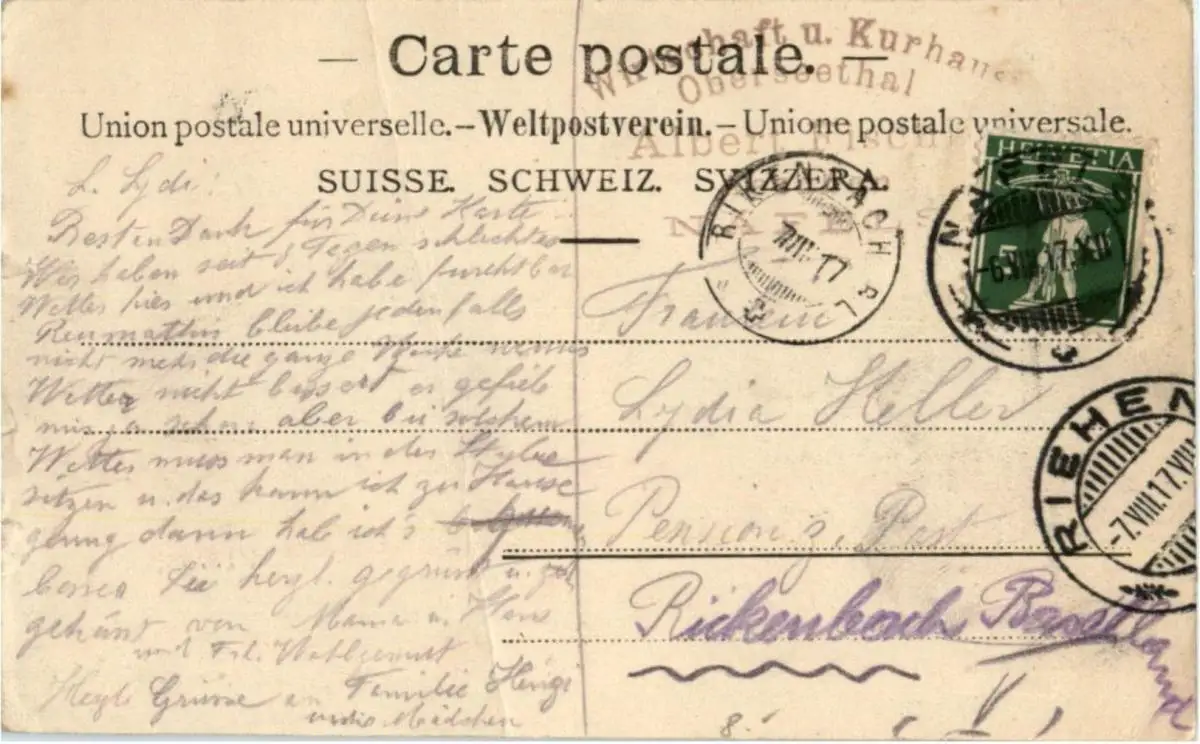 — Carte postale. —
Wirtschaft u. Kurhaus
Oberseethal
Union postale universelle. – Weltpostverein. – Unione postale universale.
Albert Fisch
SUISSE. SCHWEIZ. SVIZZERA.
NÄFELS
HELVETIA
5
-6.VIII.17.XII
RIKENBACH BL
7.VIII.17
RIEHEN
-7.VIII.17.VIII
L. Lydi!
Besten Dank für Deine Karte.
Wir haben seit gegen schlechtes
Wetter hier und ich habe furchtbar
Reumathis bleibe jedenfalls
nicht mehr die ganze Woche wenns
Wetter nicht bessert es gefiele
mir ja schon aber bei solchem
Wetter muss man in der Stube
sitzen u. das kann ich zu Hause
genug dann hab ich's
besser Sei herzl. gegrüsst u.
geküsst von Mama u. Hans
und Frl. Wohlgemut
Herzl Grüsse an Familie
und die Mädchen
Fräulein
Lydia Heller
Pension z. Post
Rickenbach Baselland
8.